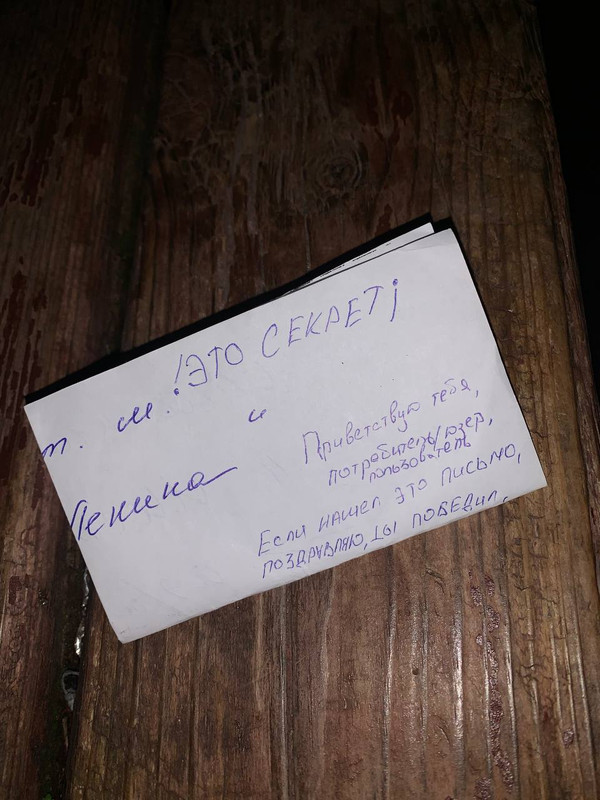 !ЭТО СЕКРЕТ¡
т. м. и
Ленина
Приветствую тебя,
потребитель/юзер,
пользователь
Если нашел это письмо,
поздравляю, ты победил,